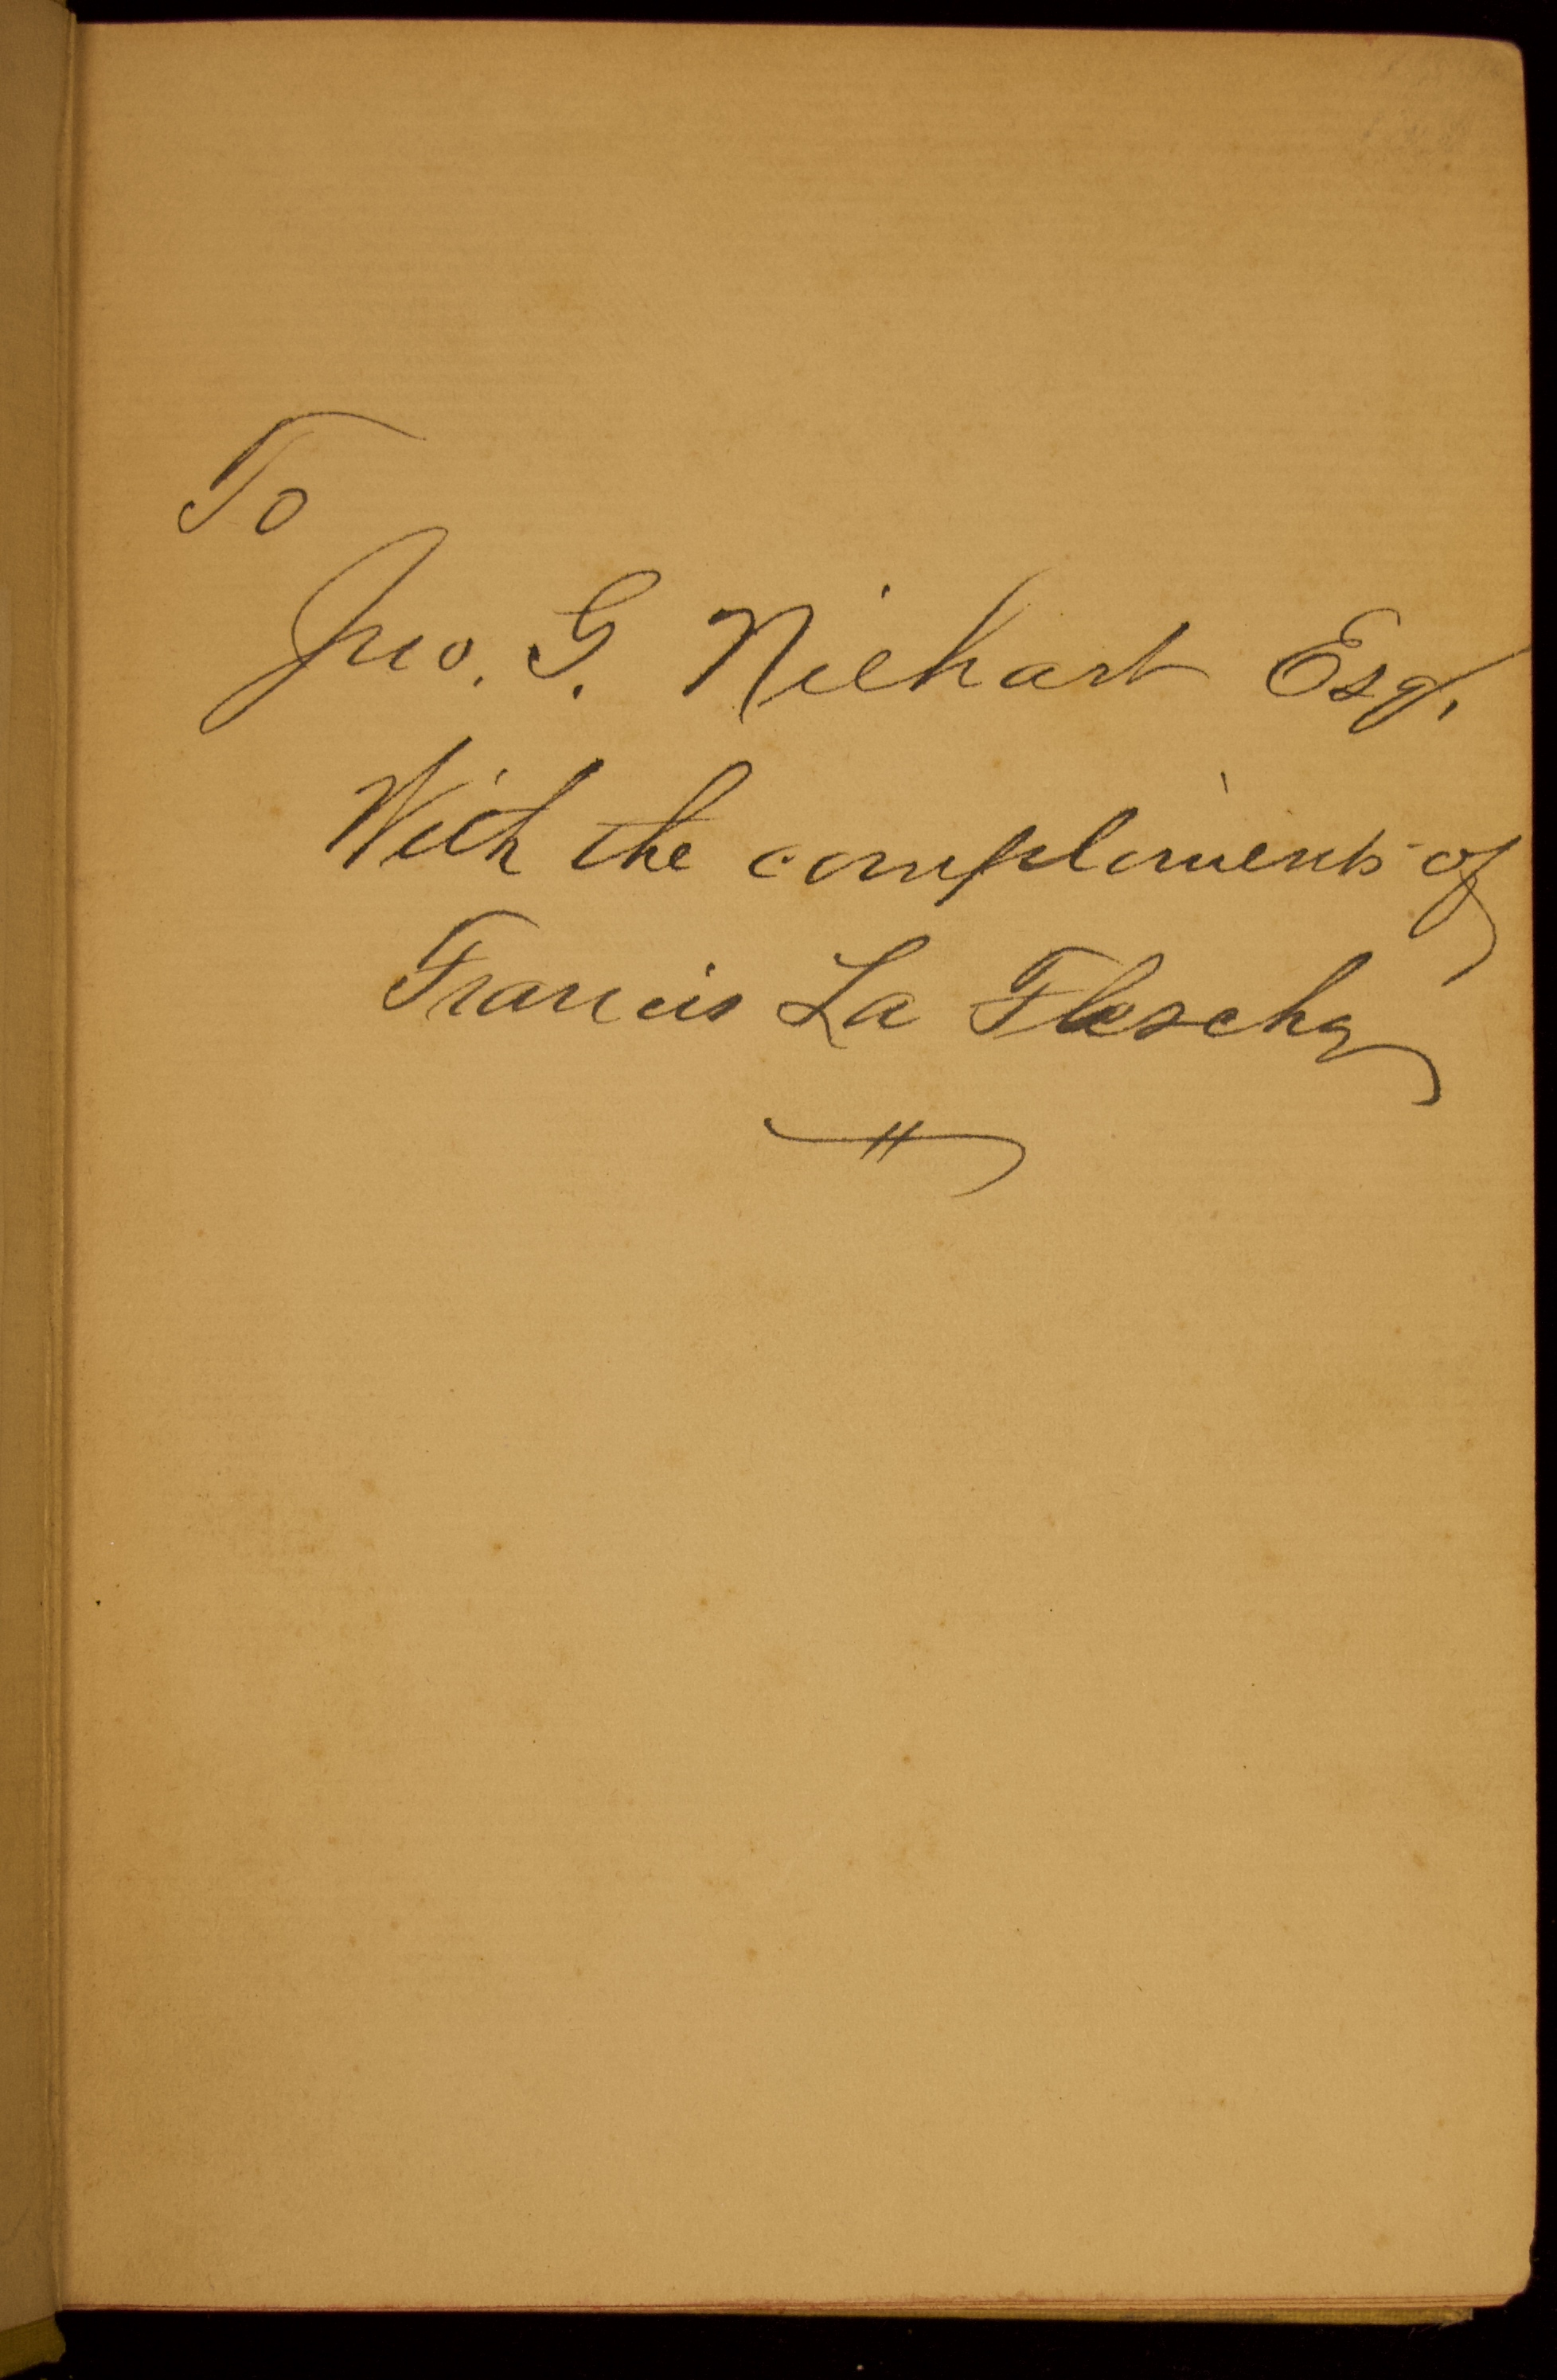 To
Jno. G. Niehart Esq.
With the compliments of
Francis La Flesche